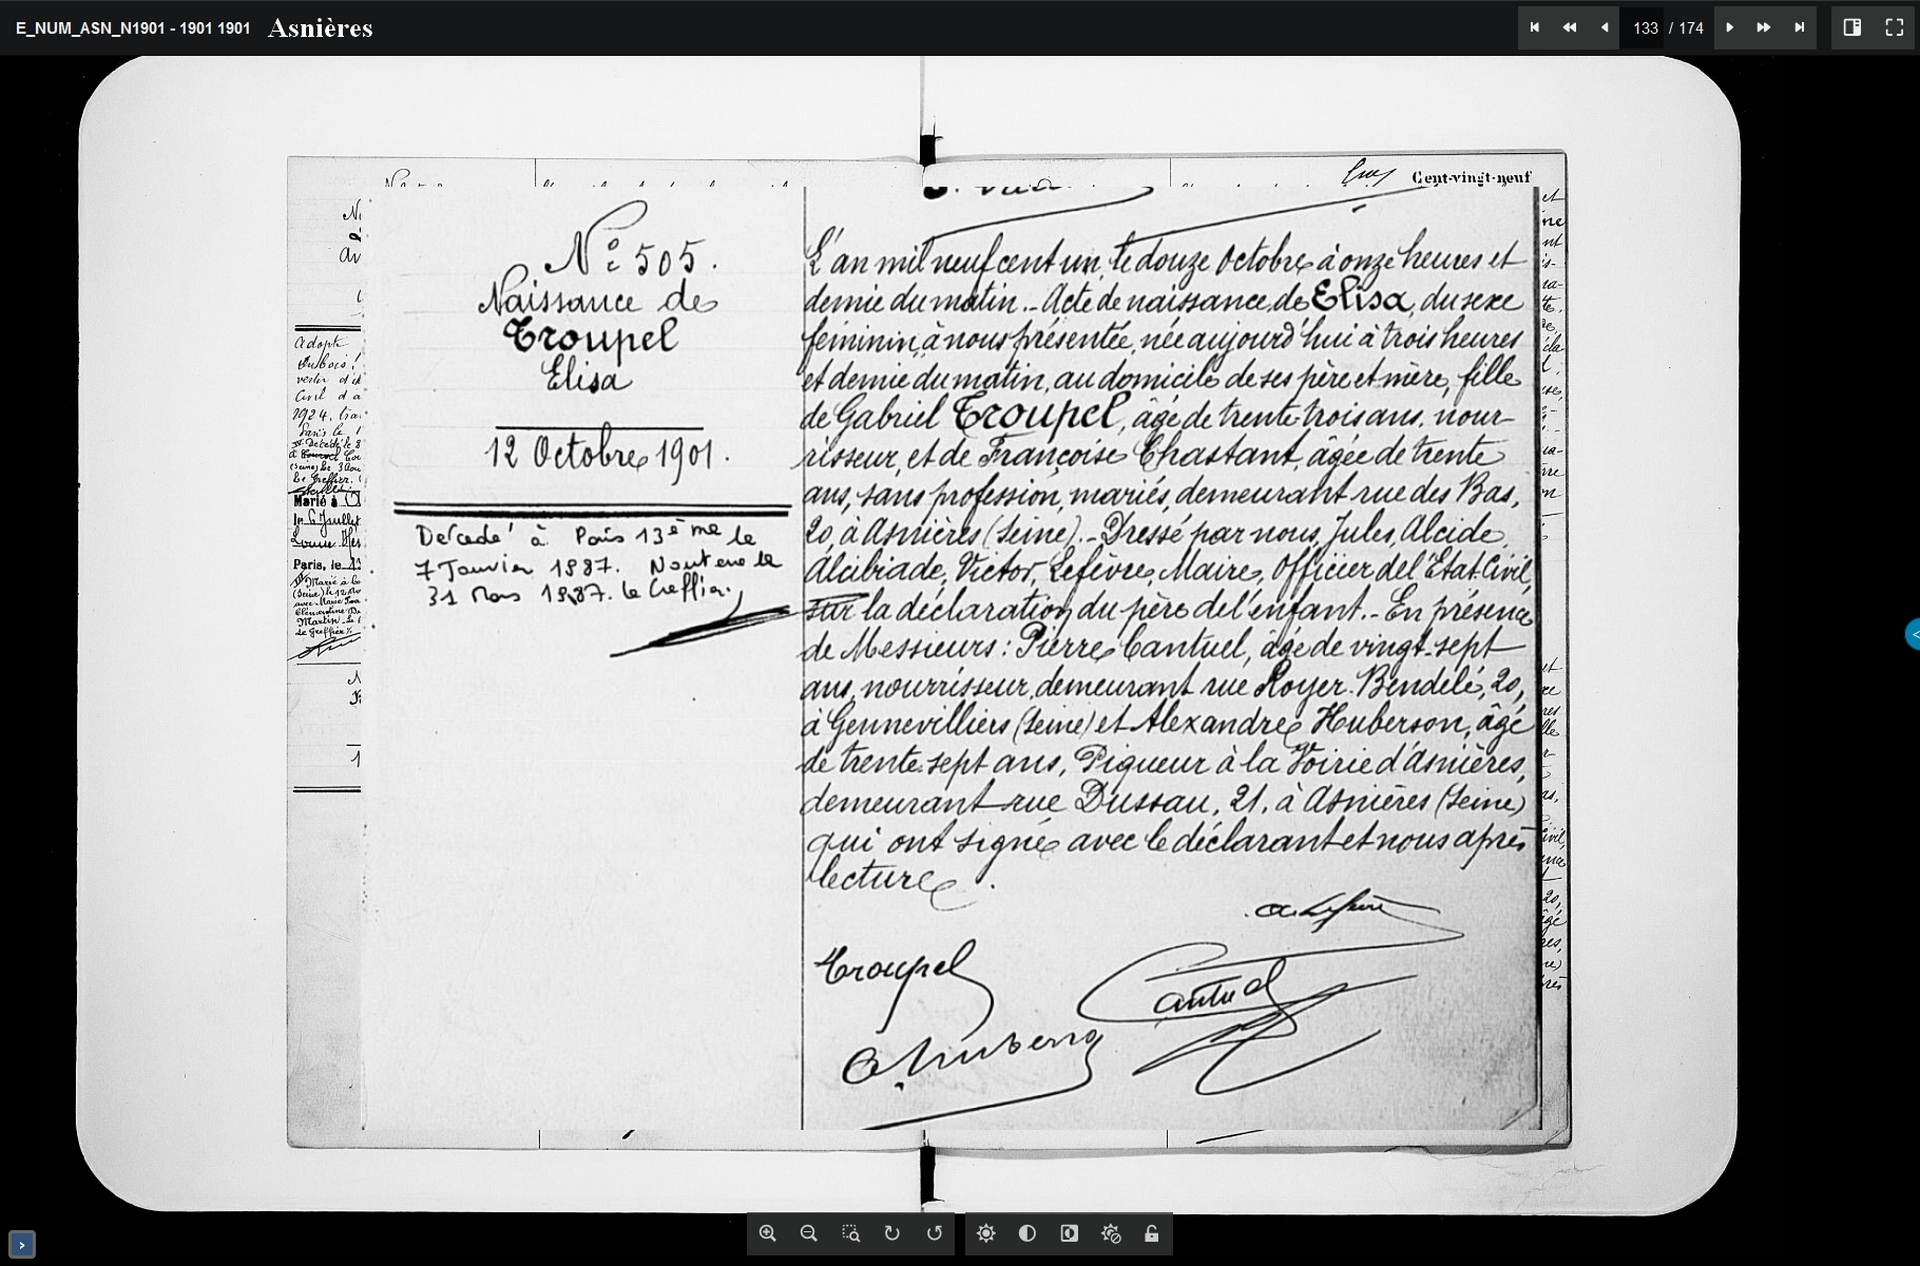 E_NUM_ASN_N1901 - 1901 1901 Asnières
133 / 174
Cent-vingt-neuf
N° 505.
Naissance de
Troupel
Elisa
12 Octobre 1901.
Décédé à Paris 13ème le
7 Janvier 1987. Nanterre le
31 Mars 1987. le Greffier.
L'an mil neuf cent un, le douze Octobre à onze heures et
demie du matin. - Acte de naissance de Elisa, du sexe
féminin, à nous présentée, née aujourd'hui à trois heures
et demie du matin, au domicile de ses père et mère, fille
de Gabriel Troupel, âgé de trente-trois ans, nour-
risseur, et de Françoise Chastant, âgée de trente
ans, sans profession, mariés, demeurant rue des Bas,
20, à Asnières (Seine). - Dressé par nous, Jules, Alcide
Alcibiade, Victor, Lefèvre, Maire, Officier de l'Etat-Civil,
sur la déclaration du père de l'enfant. - En présence
de Messieurs : Pierre Cantuel, âgé de vingt-sept
ans, nourrisseur, demeurant rue Royer-Bendelé, 20,
à Gennevilliers (Seine) et Alexandre Huberson, âgé
de trente-sept ans, Piqueur à la Voirie d'Asnières,
demeurant rue Dussau, 21, à Asnières (Seine)
qui ont signé avec le déclarant et nous après
lecture.
A. Lefèvre
Troupel
Cantuel
adopté
1924.
Marié à
le 6 Juillet
Paris, le
Marié à
(Seine) le 12
Martin. Le
Le Greffier